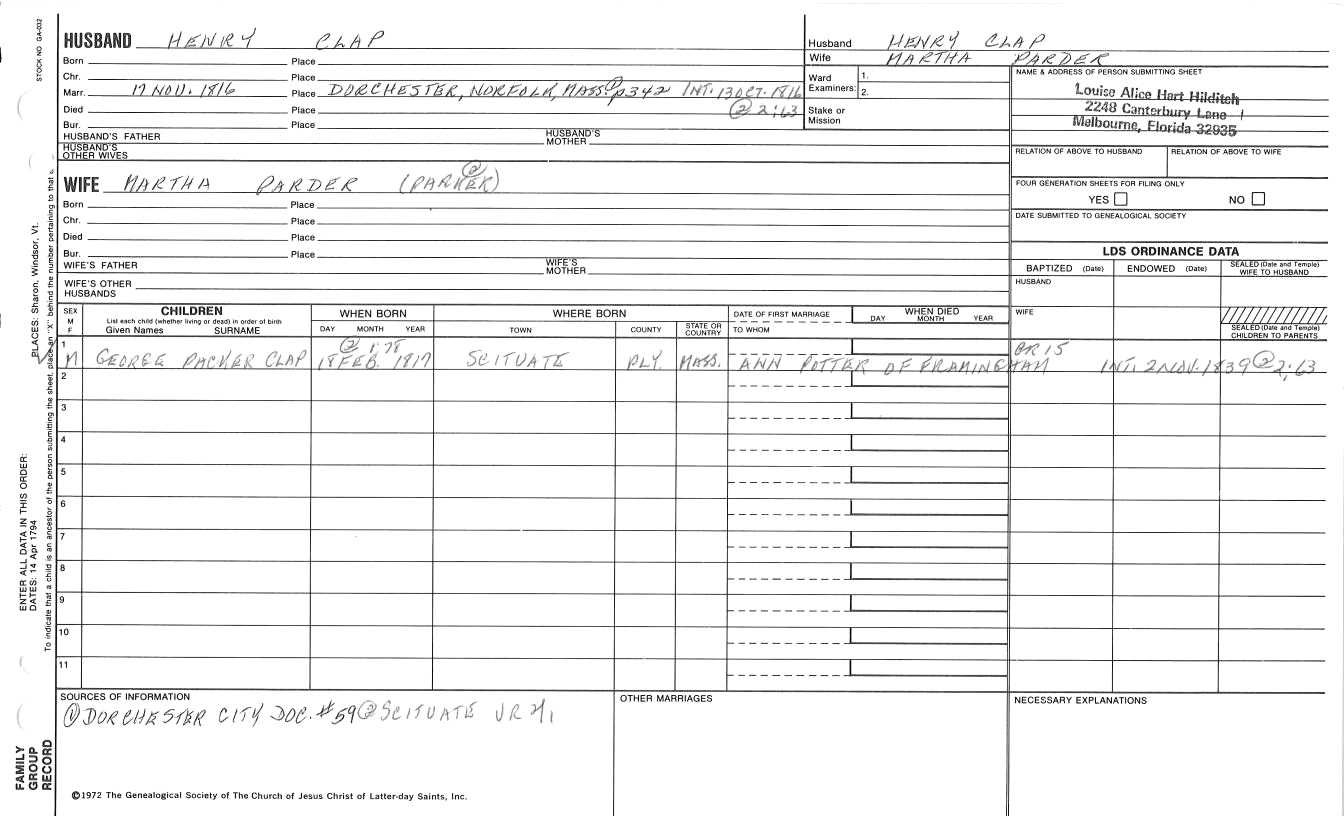 STOCK NO GA-032
HUSBAND HENRY CLAP
Born Place
Chr. Place
Marr. 17 NOV. 1816 Place DORCHESTER, NORFOLK, MASS. p342 INT. 13 OCT. 1816
Died Place ② 2:63
Bur. Place
HUSBAND'S FATHER HUSBAND'S MOTHER
HUSBAND'S OTHER WIVES
②
WIFE MARTHA PARDER (PARKER)
Born Place
Chr. Place
Died Place
Bur. Place
WIFE'S FATHER WIFE'S MOTHER
WIFE'S OTHER HUSBANDS
Husband HENRY CLAP
Wife MARTHA PARDER
Ward Examiners: 1.
2.
Stake or Mission
NAME & ADDRESS OF PERSON SUBMITTING SHEET
Louise Alice Hart Hilditch
2248 Canterbury Lane
Melbourne, Florida 32935
RELATION OF ABOVE TO HUSBAND RELATION OF ABOVE TO WIFE
FOUR GENERATION SHEETS FOR FILING ONLY
YES NO
DATE SUBMITTED TO GENEALOGICAL SOCIETY
LDS ORDINANCE DATA
BAPTIZED (Date) ENDOWED (Date) SEALED (Date and Temple) WIFE TO HUSBAND
HUSBAND
WIFE
SEALED (Date and Temple) CHILDREN TO PARENTS
SEX M F
CHILDREN
List each child (whether living or dead) in order of birth
Given Names SURNAME
WHEN BORN
DAY MONTH YEAR
WHERE BORN
TOWN COUNTY STATE OR COUNTRY
DATE OF FIRST MARRIAGE
TO WHOM
WHEN DIED
DAY MONTH YEAR
② 1:78
1 M GEORGE PACKER CLAP 18 FEB. 1817 SCITUATE PLY. MASS. ANN POTTER OF FRAMINGHAM INT. 2 NOV. 1839 ② 2:63
2
3
4
5
6
7
8
9
10
11
SOURCES OF INFORMATION
① DORCHESTER CITY DOC. #59 ② SCITUATE VR
OTHER MARRIAGES
NECESSARY EXPLANATIONS
©1972 The Genealogical Society of The Church of Jesus Christ of Latter-day Saints, Inc.
FAMILY GROUP RECORD
ENTER ALL DATA IN THIS ORDER:
DATES: 14 Apr 1794
PLACES: Sharon, Windsor, Vt.
To indicate that a child is an ancestor of the person submitting the sheet, place an "X" behind the number pertaining to that